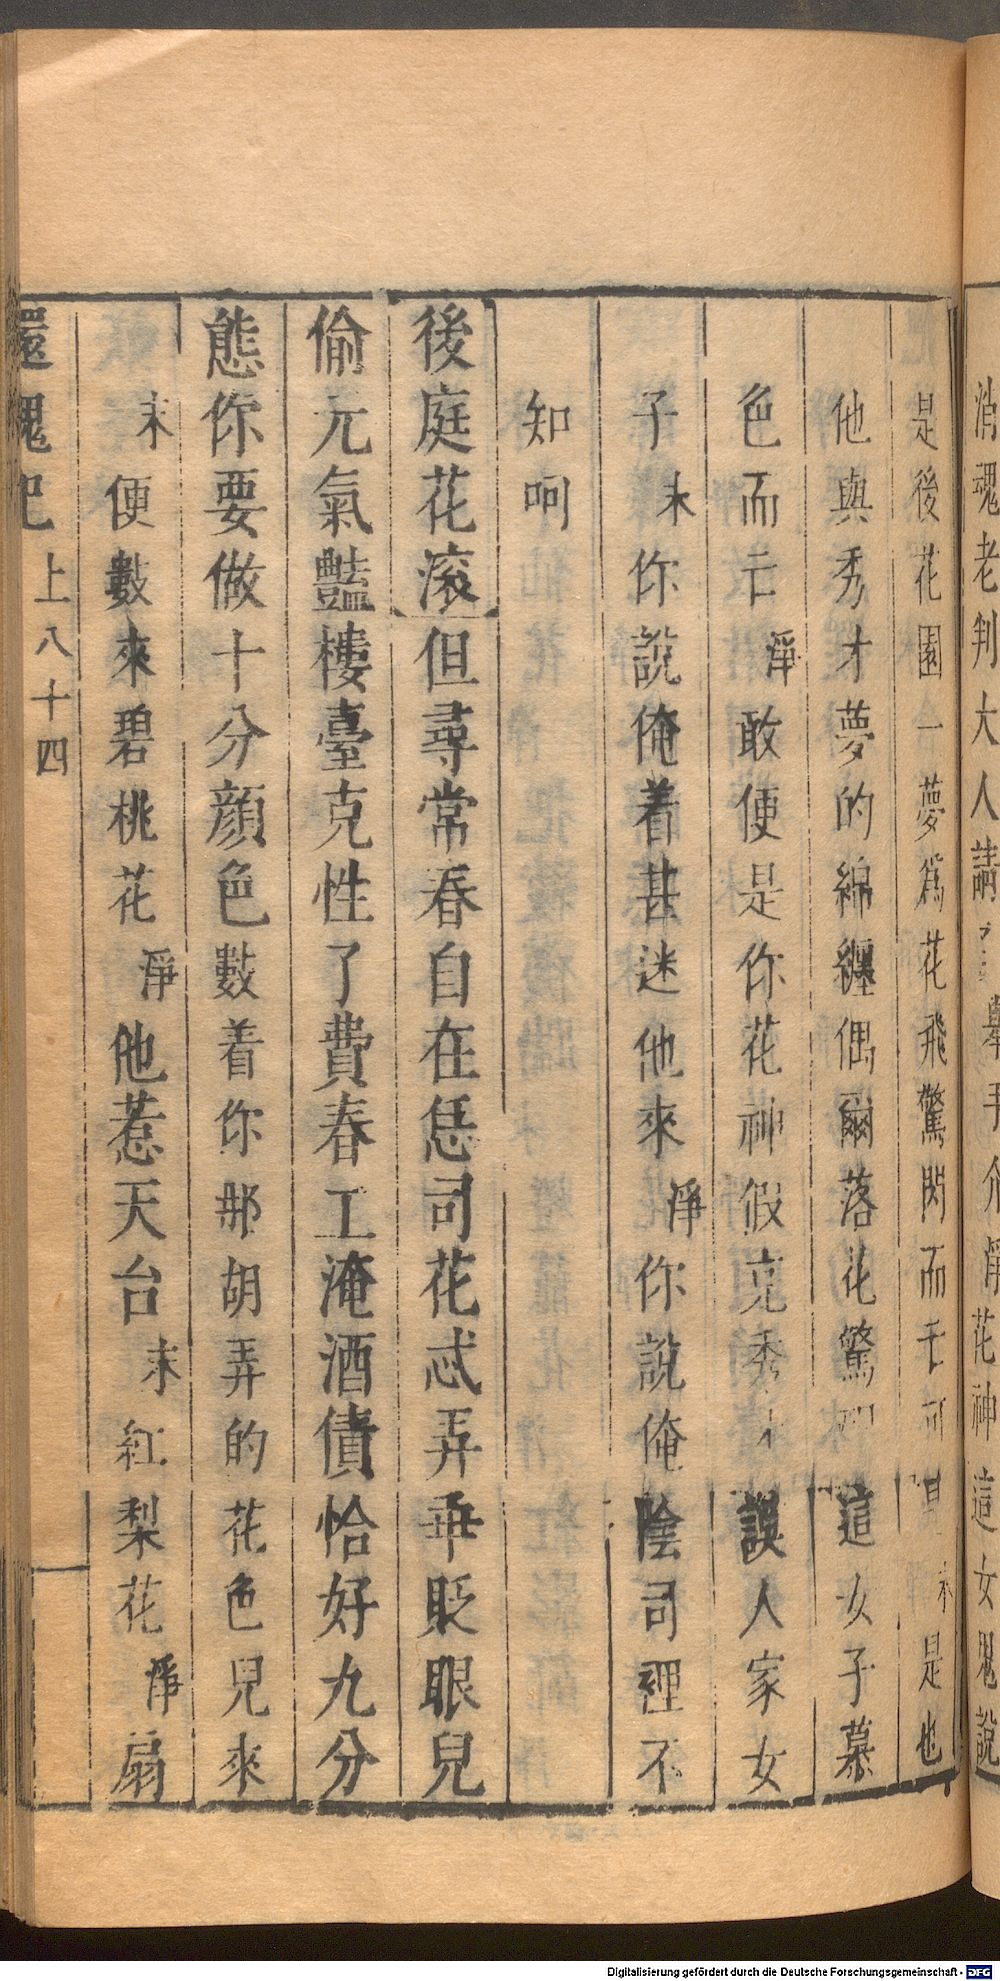 消魂老判大人請舉手介淨花神這女鬼說
是後花園一夢爲花飛驚閃而亡可是末是也
他與秀才夢的綿纏偶爾落花驚這女子慕
色而亡淨敢便是你花神假克秀才誤人家女
子末你說俺着甚迷他來淨你說俺陰司裡不
知呵
後庭花滾但尋常春自在恁司花忒弄乖眨眼兒
偷元氣豔樓臺克性了費春工淹酒債恰好九分
態你要做十分顔色數着你那胡弄的花色兒來
末便數來碧桃花淨他惹天台末紅梨花淨扇
還魂記 上八十四
Digitalisierung gefördert durch die Deutsche Forschungsgemeinschaft - DFG